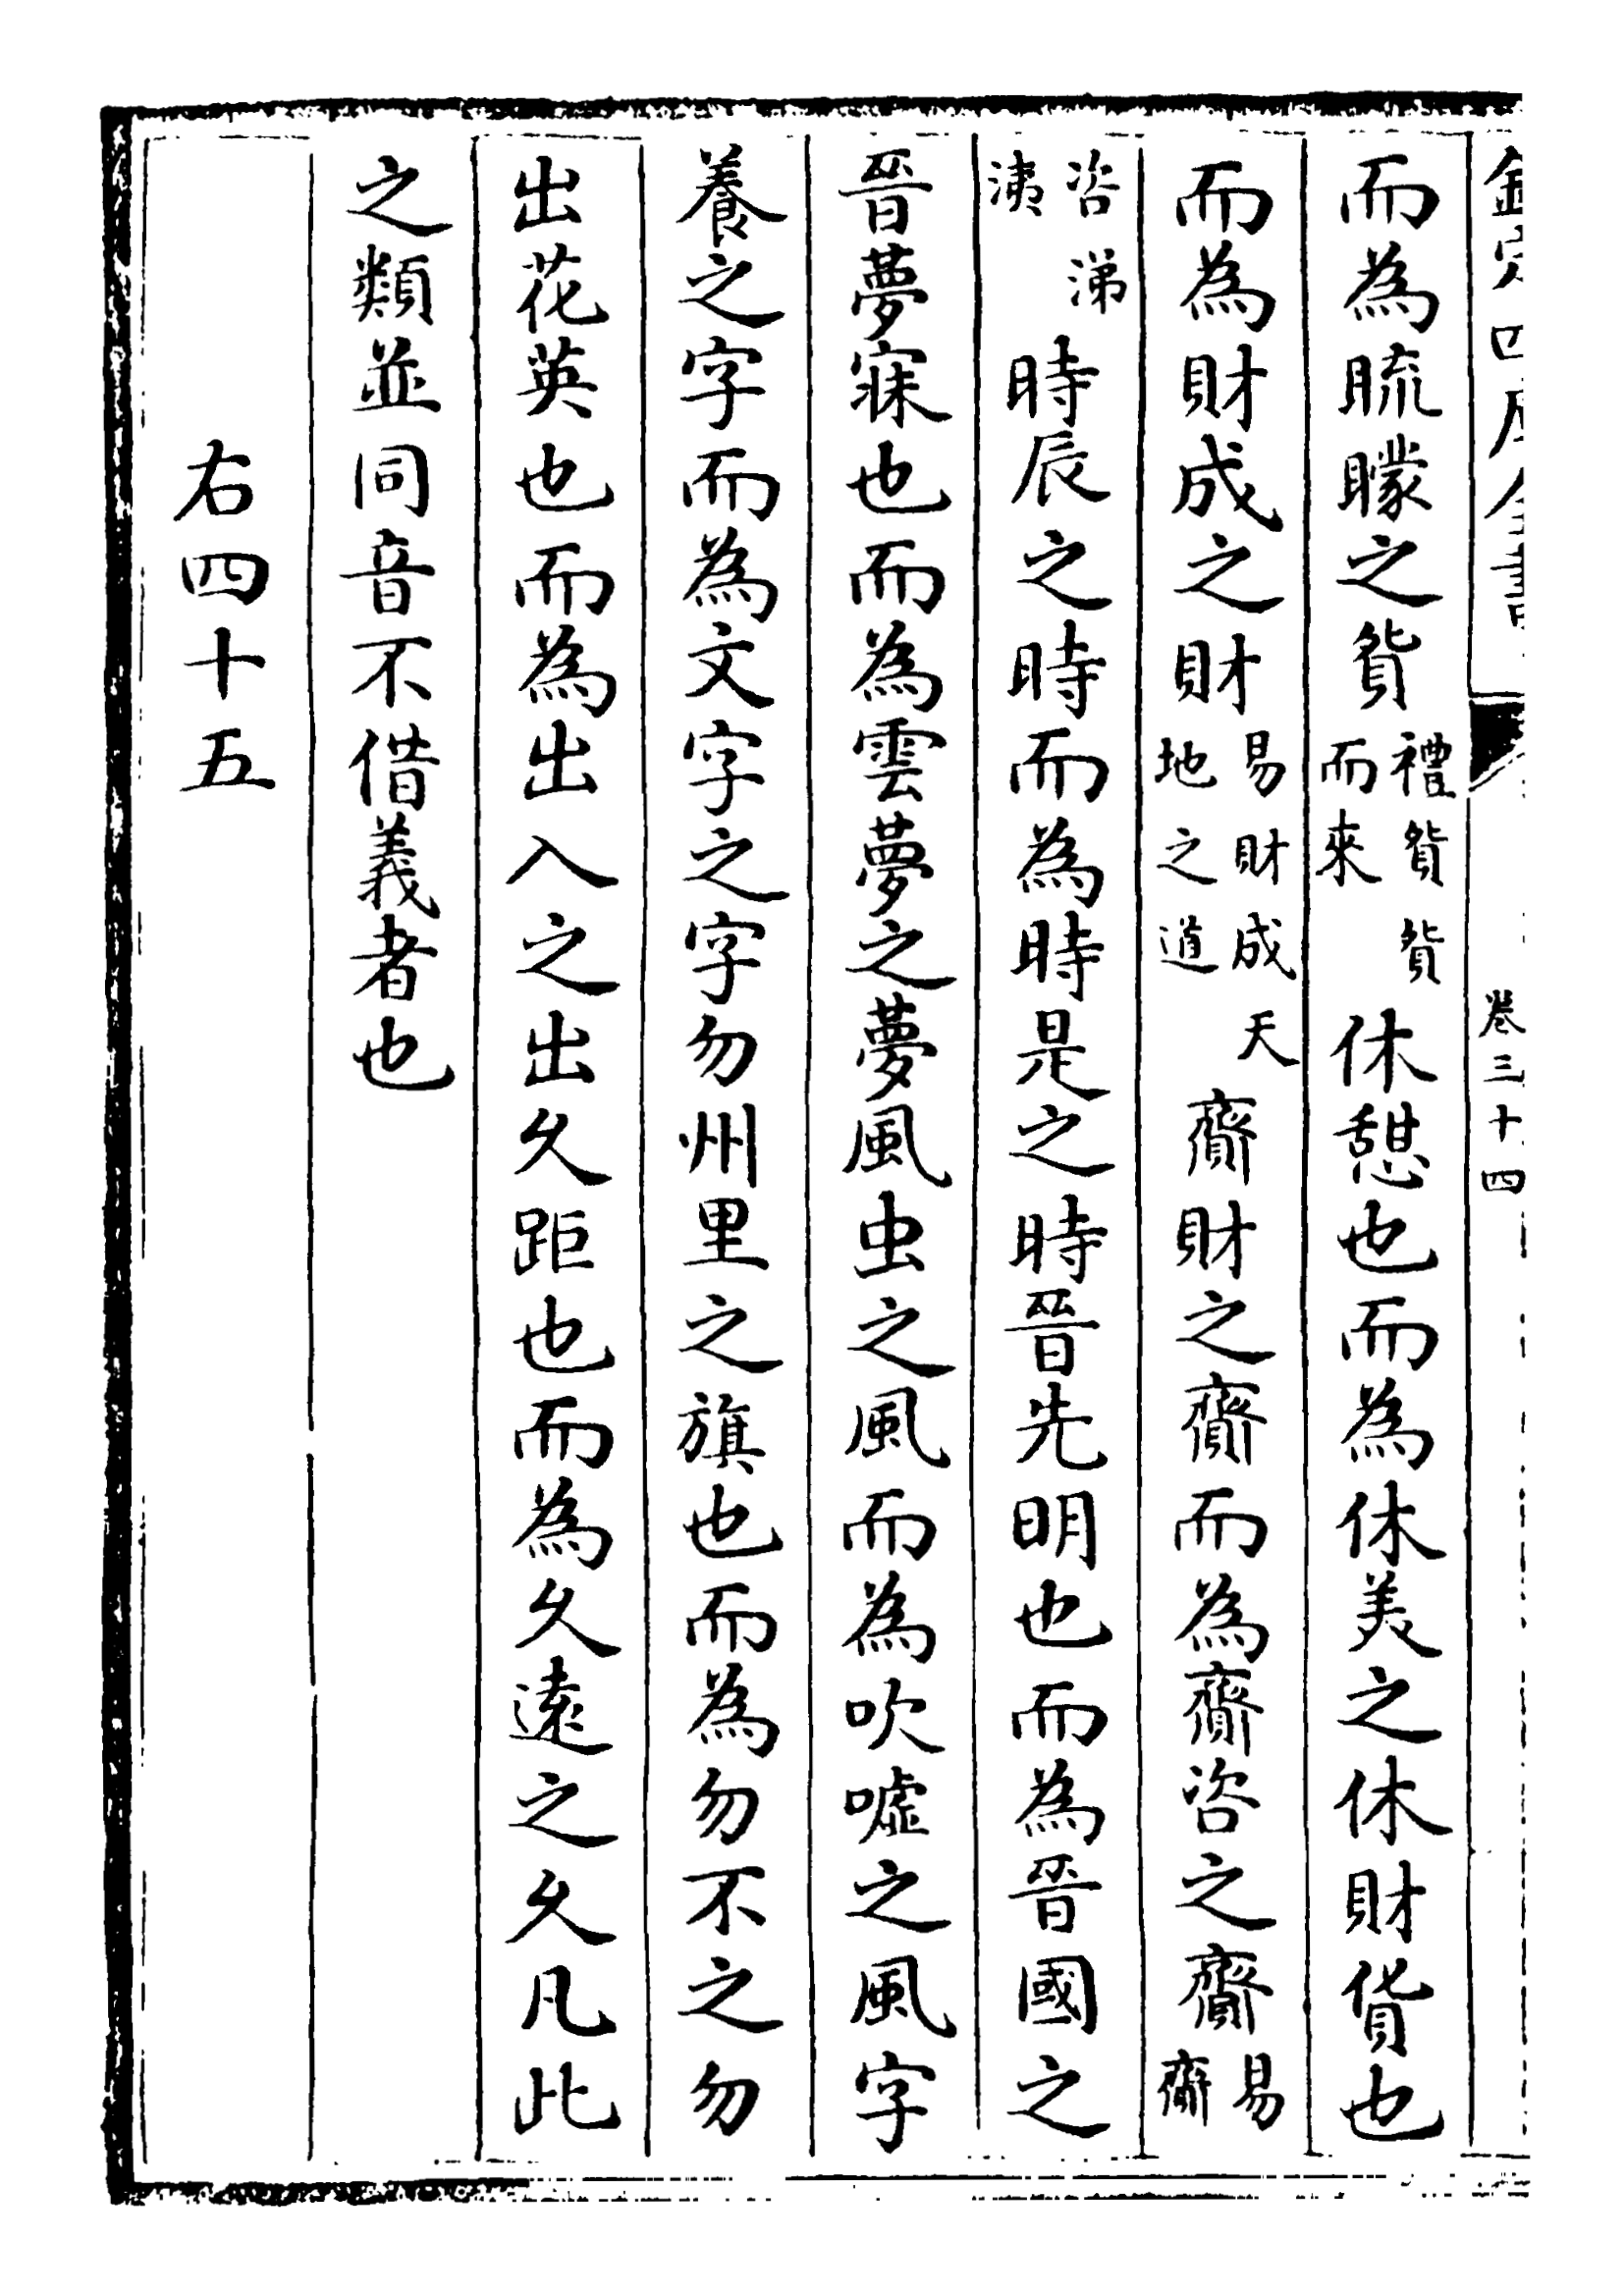 欽定四庫全書 卷三十四
而為矇之貿禮貿貿而來休憩也而為休美之休財貨也
而為財成之財易財成天地之道齎財之齎而為齎咨之齎易齎
咨涕洟時辰之時而為時是之時晉先明也而為晉國之
晉夢寐也而為雲夢之夢風虫之風而為吹噓之風字
養之字而為文字之字勿州里之旗也而為勿不之勿
出花英也而為出入之出久距也而為久遠之久凡此
之類並同音不借義者也
右四十五